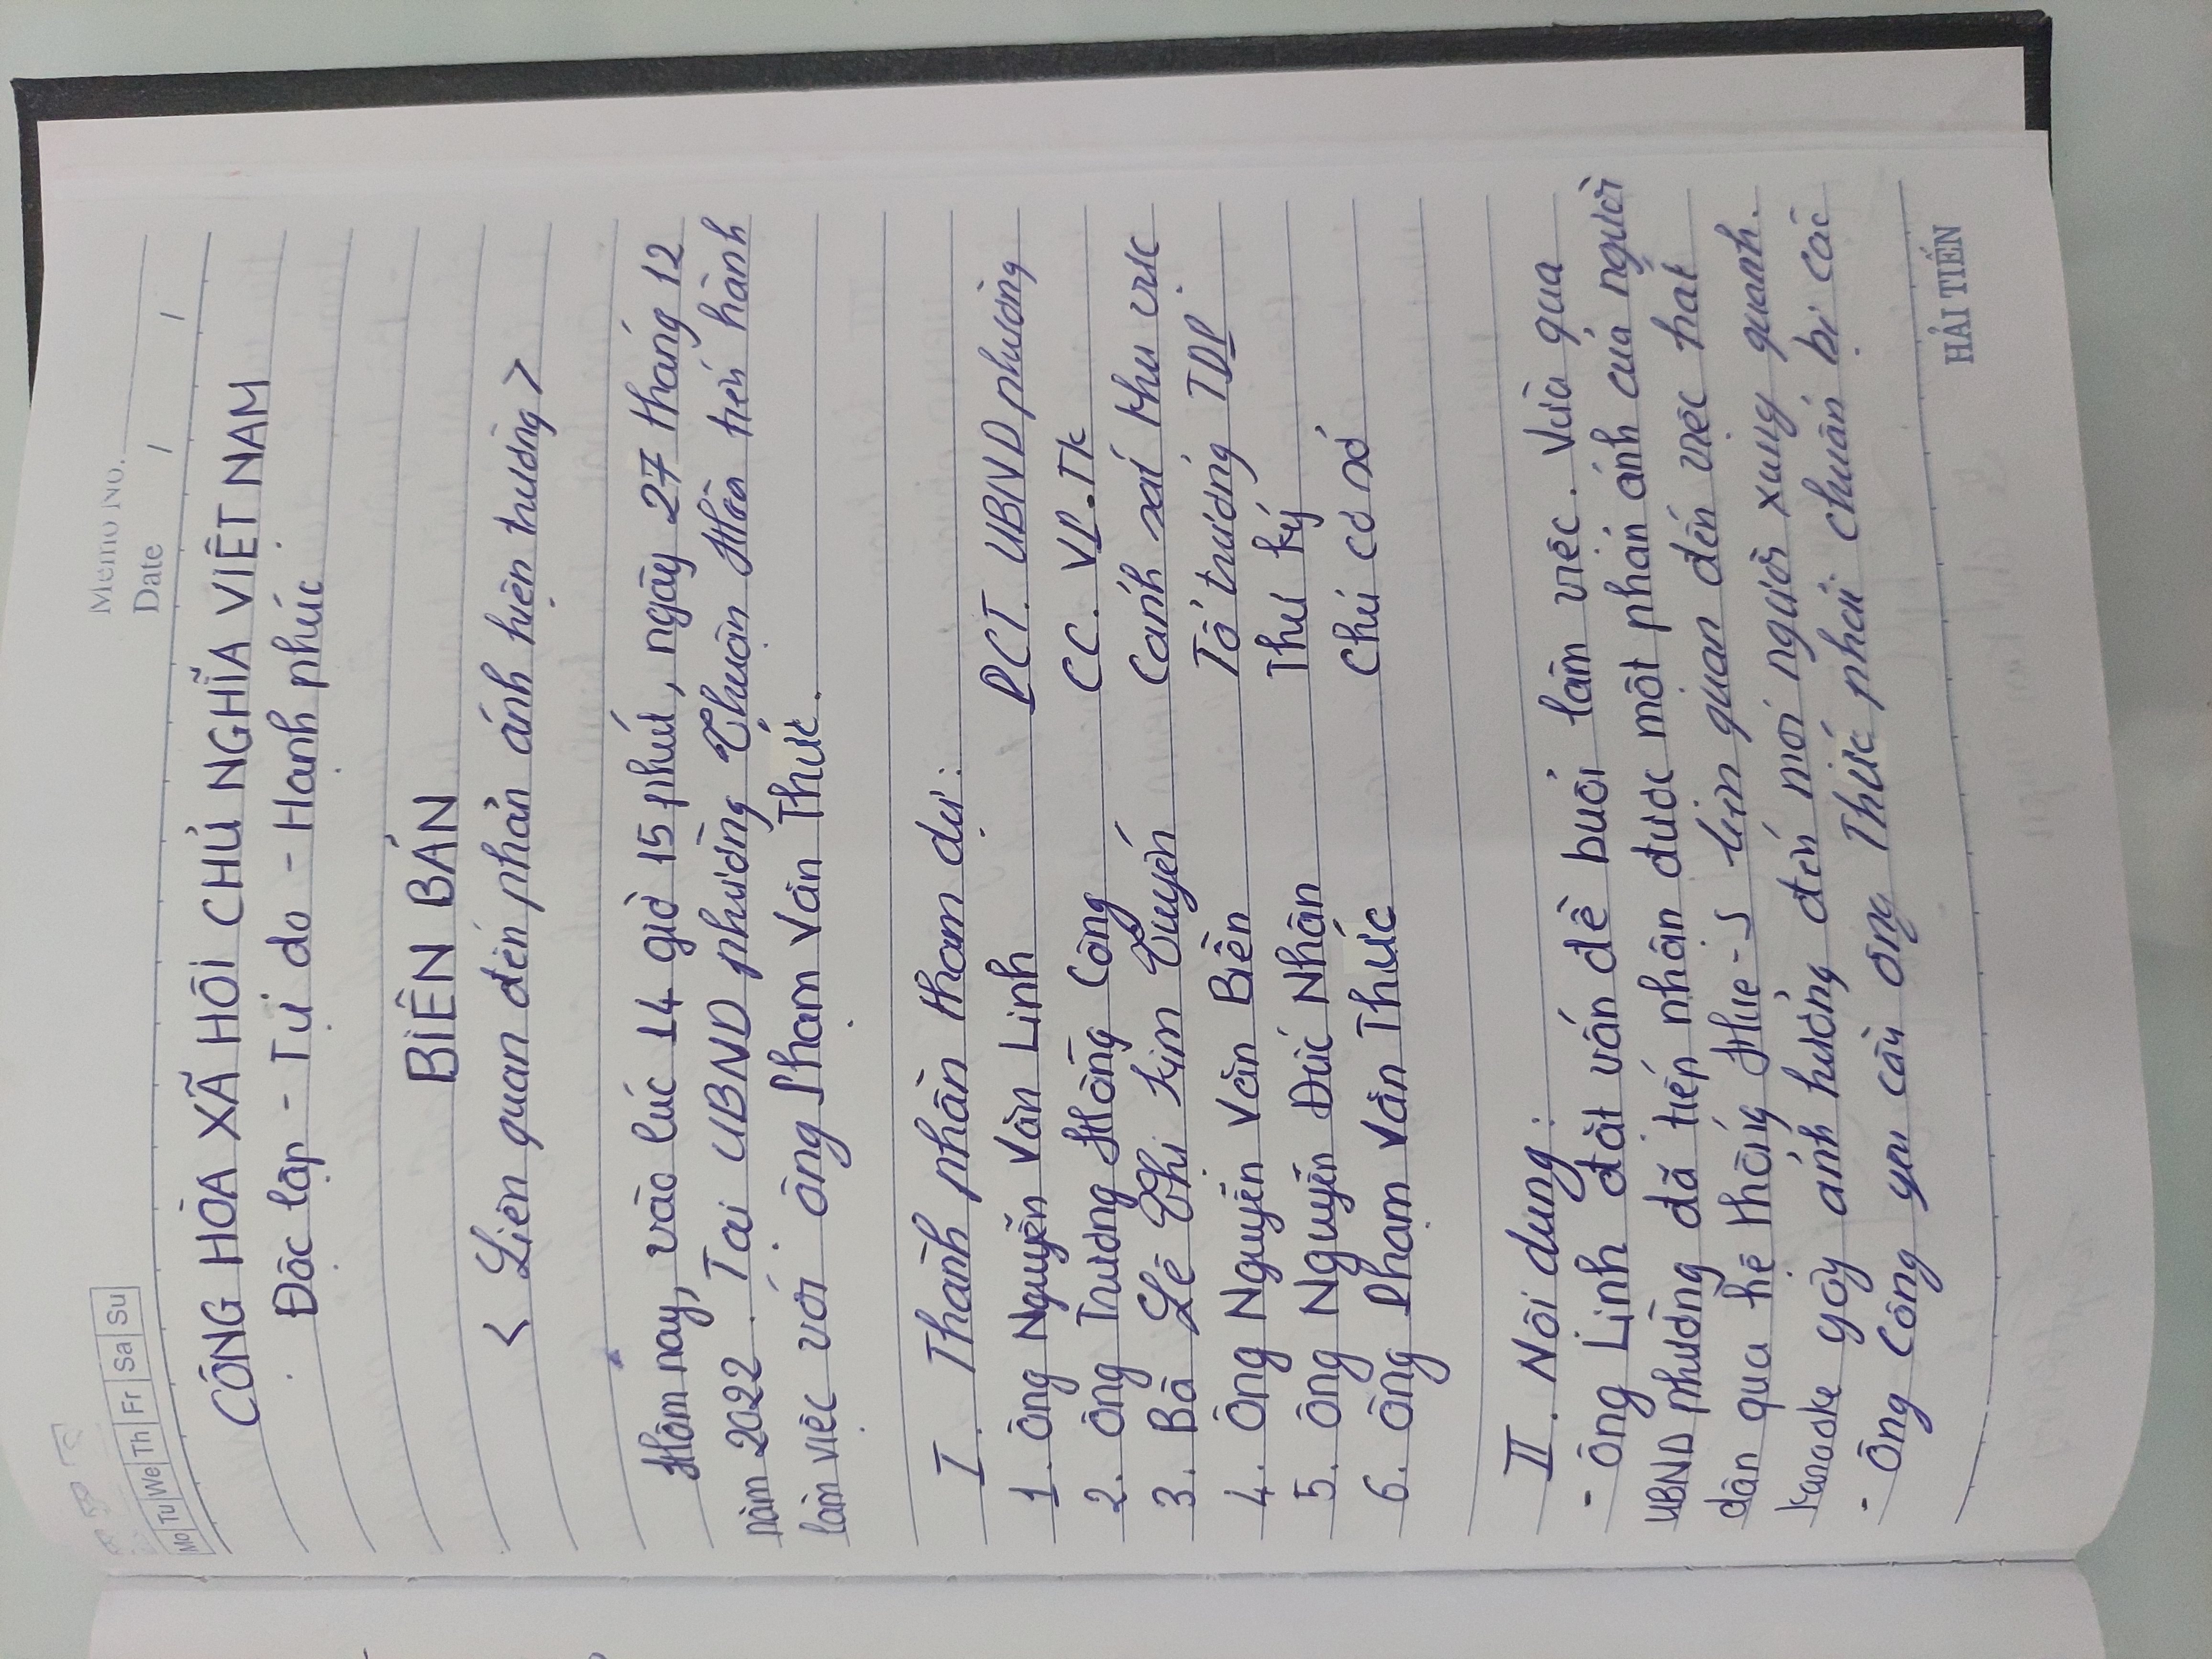 Memo No.
Mo Tu We Th Fr Sa Su
Date / /
CỘNG HÒA XÃ HỘI CHỦ NGHĨA VIỆT NAM
Độc lập - Tự do - Hạnh phúc
BIÊN BẢN
< Liên quan đến phản ánh hiện trường >
Hôm nay, vào lúc 14 giờ 15 phút, ngày 27 tháng 12
năm 2022. Tại UBND phường Thuận Hòa tiến hành
làm việc với ông Phạm Văn Thức.
I. Thành phần tham dự:
1. Ông Nguyễn Văn Linh PCT. UBND phường
2. Ông Trương Hồng Công CC. VP-TK
3. Bà Lê Thị Kim Tuyến Cảnh sát khu vực
4. Ông Nguyễn Văn Biên Tổ trưởng TDP
5. Ông Nguyễn Đức Nhân Thư ký
6. Ông Phạm Văn Thức Chủ cơ sở
II. Nội dung:
- Ông Linh đặt vấn đề buổi làm việc. Vừa qua
UBND phường đã tiếp nhận được một phản ánh của người
dân qua hệ thống Hue-S liên quan đến việc hát
karaoke gây ảnh hưởng đến mọi người xung quanh.
- Ông Công yêu cầu ông Thức phải chuẩn bị các
HẢI TIẾN